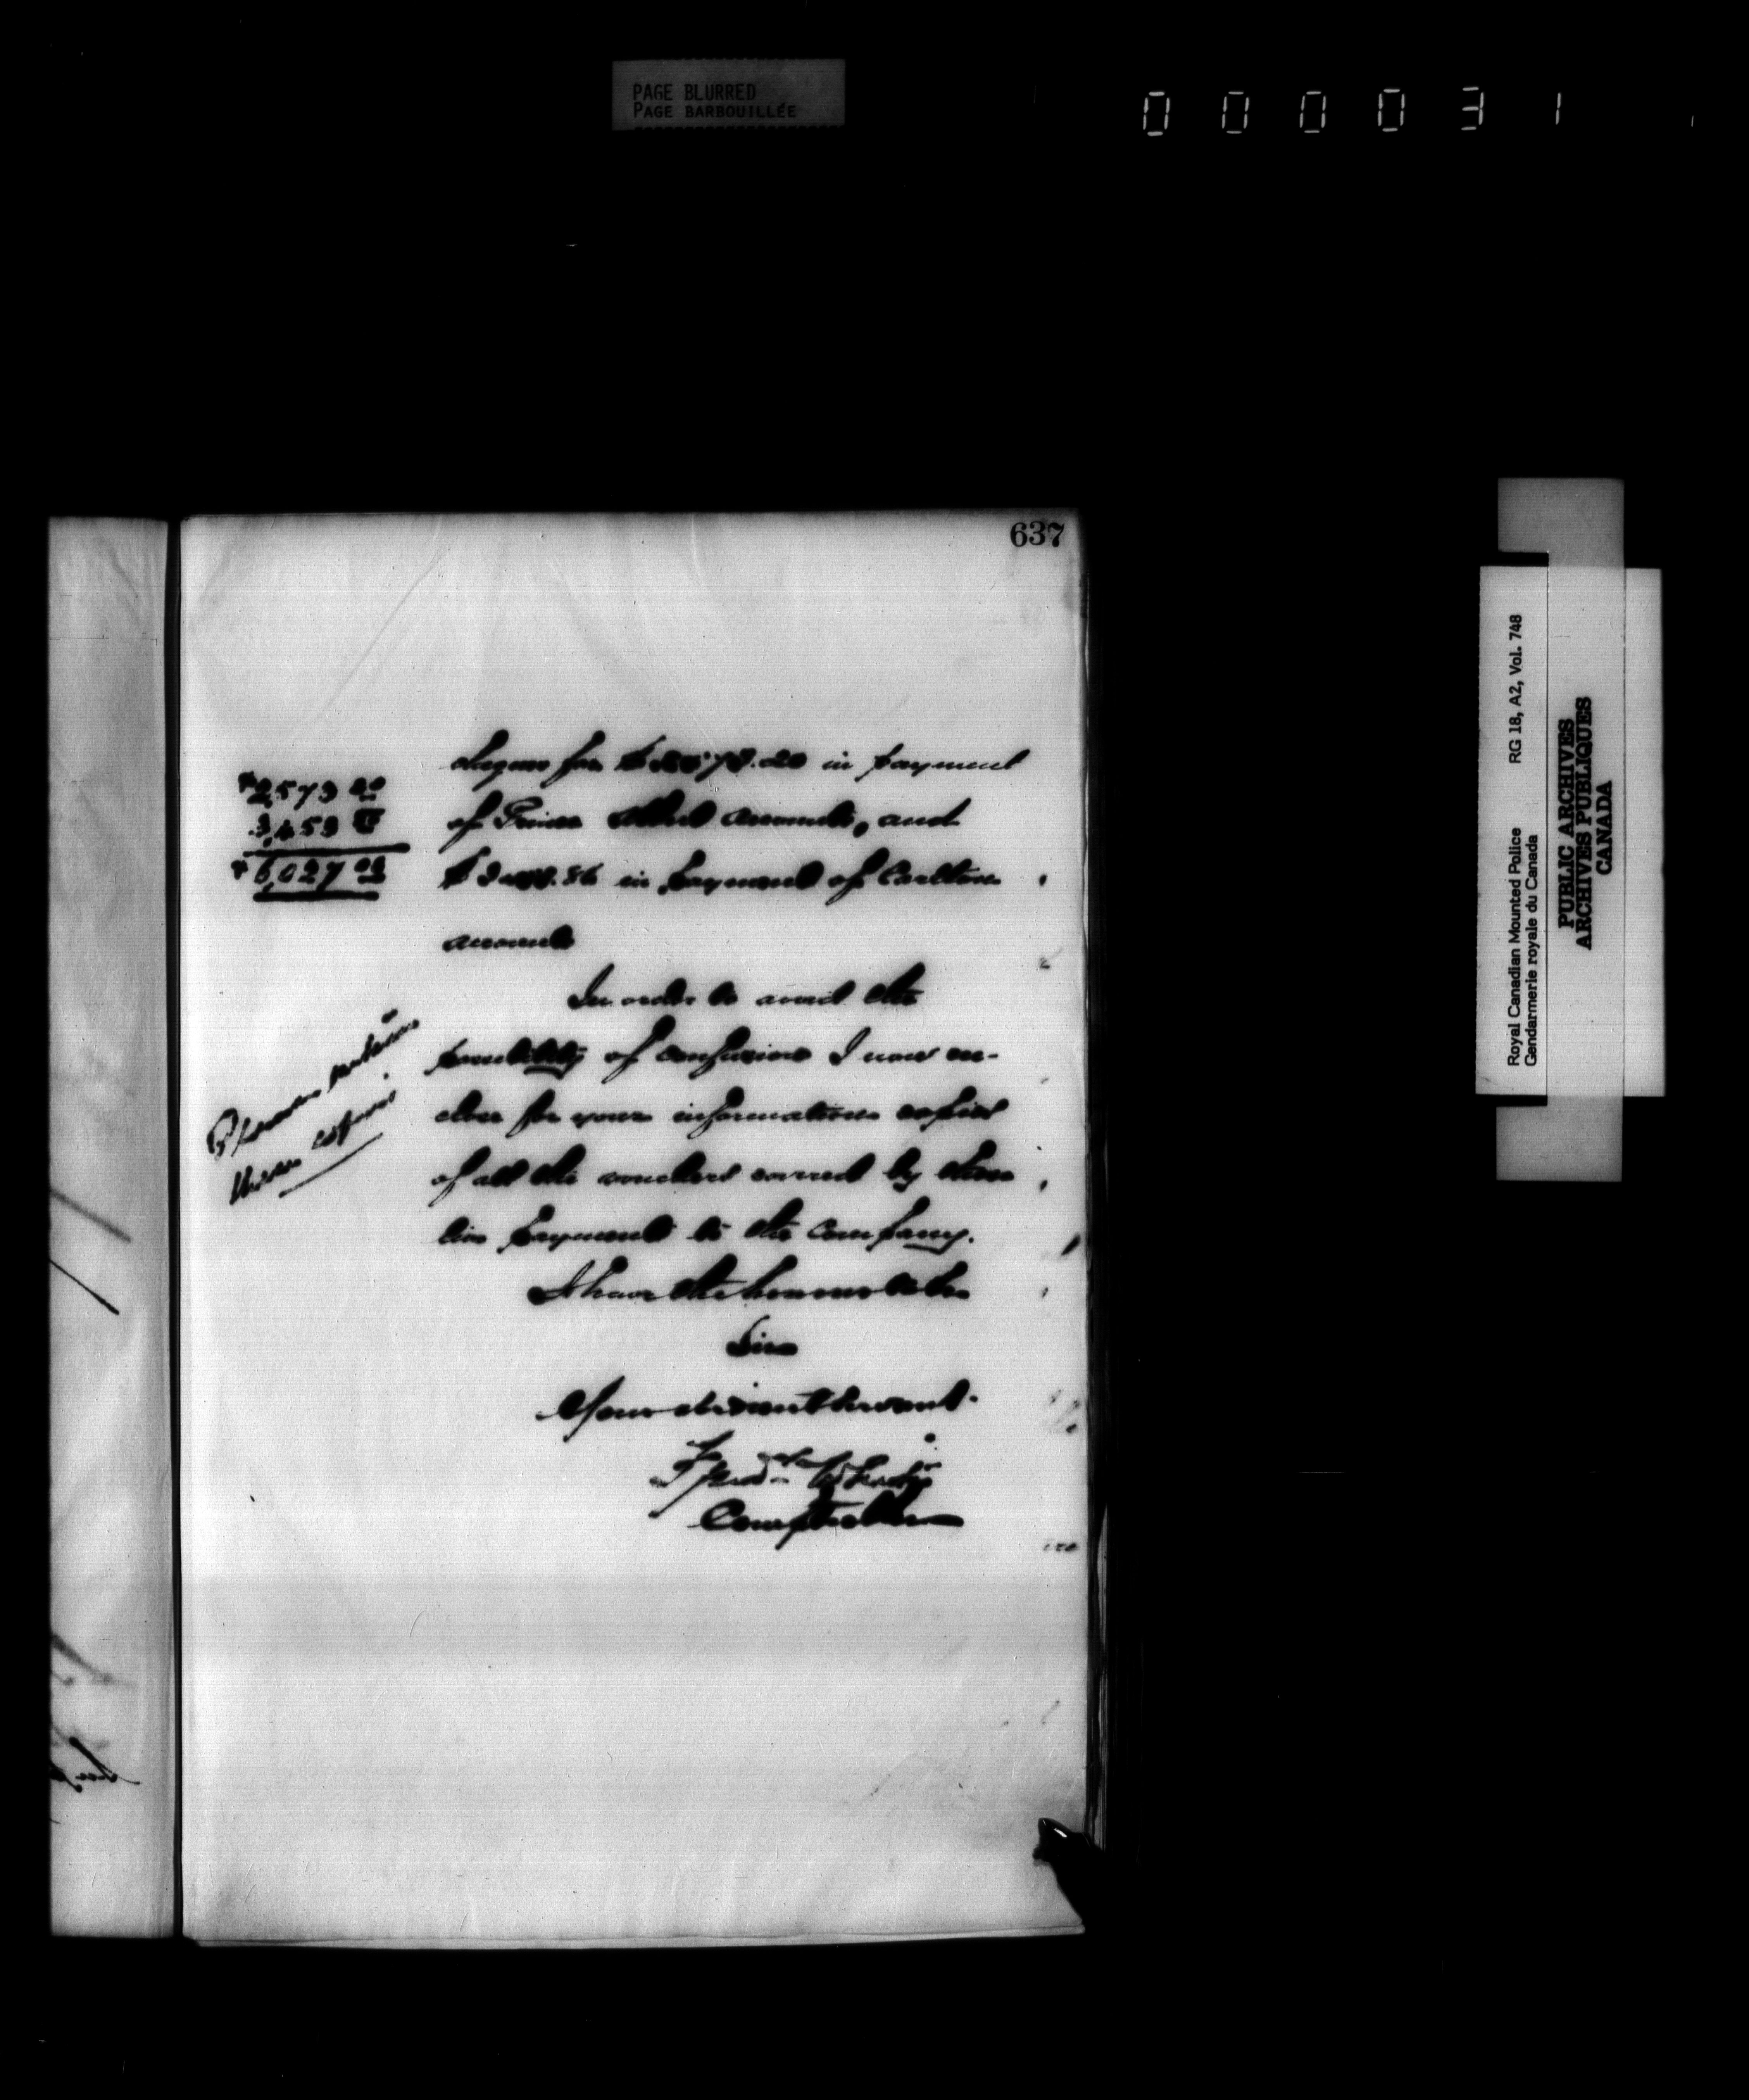 PAGE BLURRED
PAGE BARBOUILLÉE
000031
637
for $2573.20 in payment
of Prince Albert accounts, and
$3453.86 in payment of Carlton
accounts
$2,573 20
3,453 86
$6,027 06
In order to avoid the
possibility of confusion I now en-
close for your information copies
of all the vouchers covered by these
two payments to the Company.
Please return
these copies
I have the honour to be
Sir
Your obedient servant.
Fred White
Comptroller
Royal Canadian Mounted Police RG 18, A2, Vol. 748
Gendarmerie royale du Canada
PUBLIC ARCHIVES
ARCHIVES PUBLIQUES
CANADA